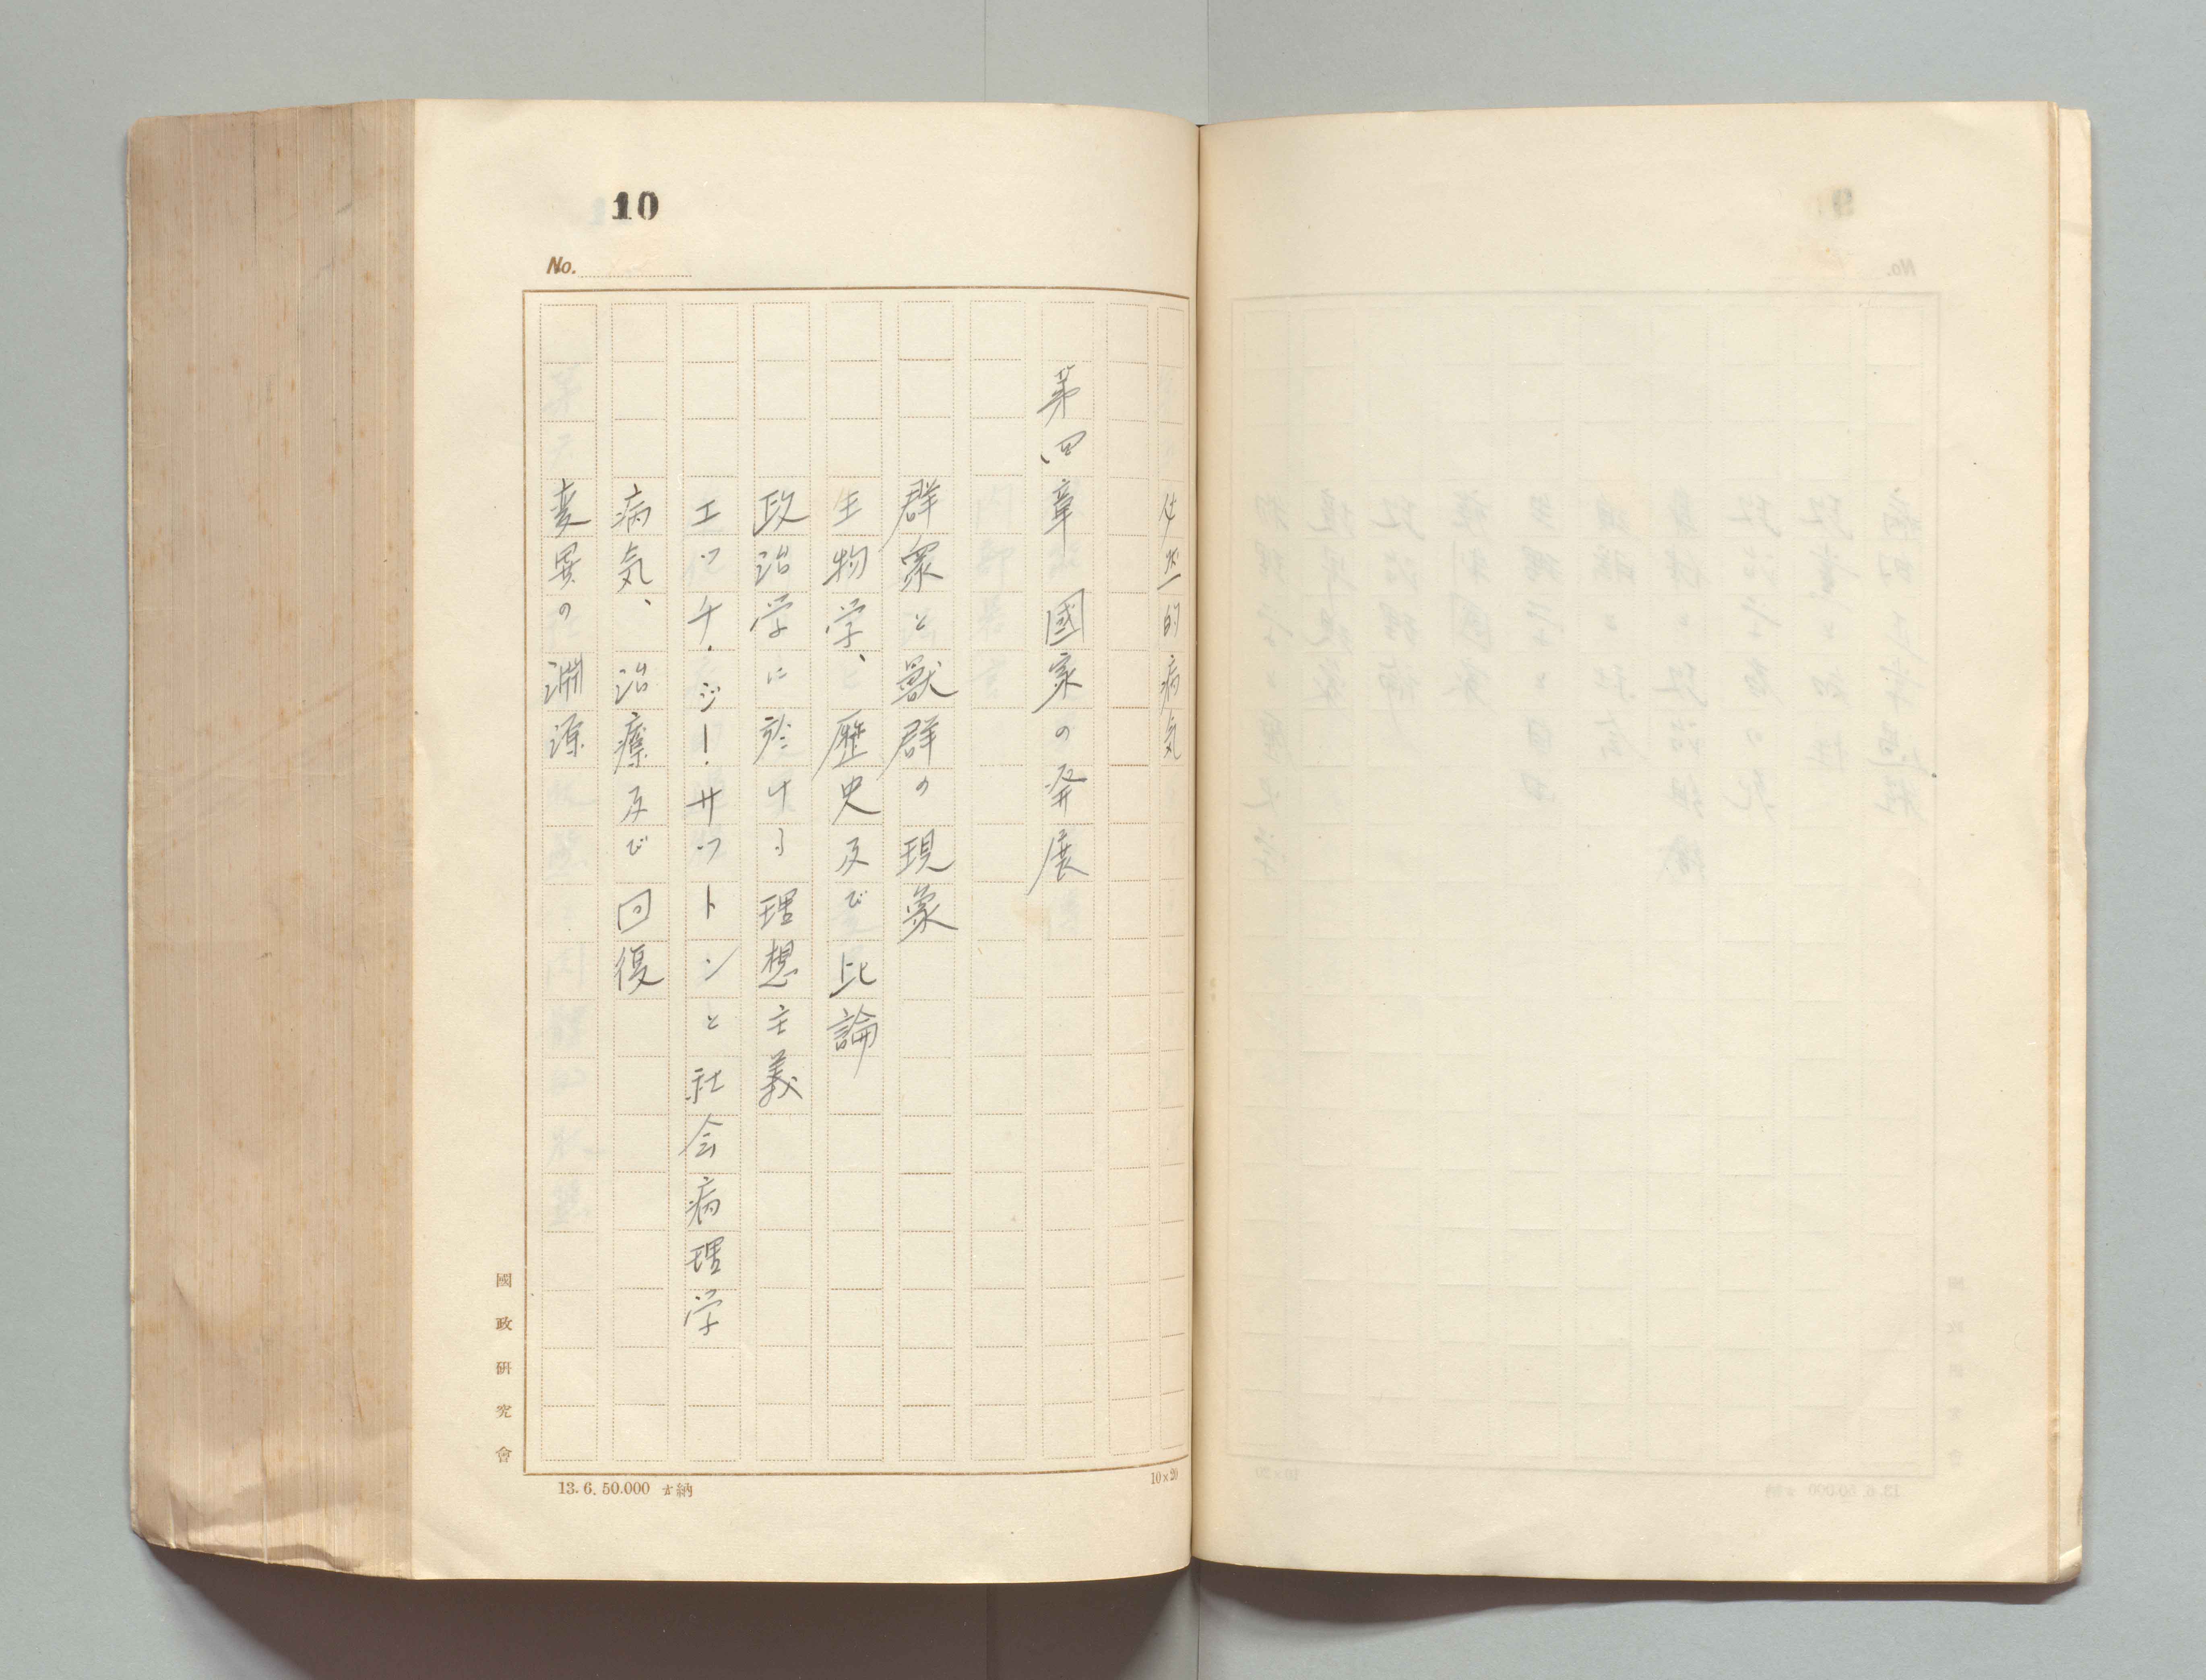 10
No.
的病気
第四章 國家の発展
群衆と獣群の現象
生物学、歴史及び比論
政治学に於ける理想主義
エッチ・ジー・サットンと社会病理学
病気、治療及び回復
変異の淵源
國政研究會
13.6.50.000 納
10×20